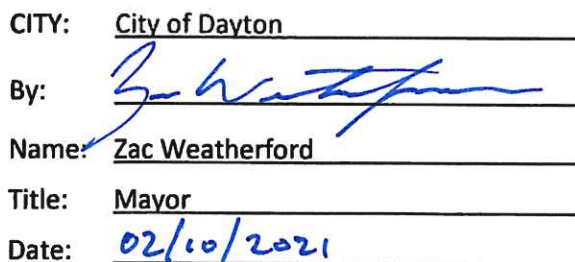 CITY: City of Dayton
By: Zac Weatherford
Name: Zac Weatherford
Title: Mayor
Date: 02/10/2021